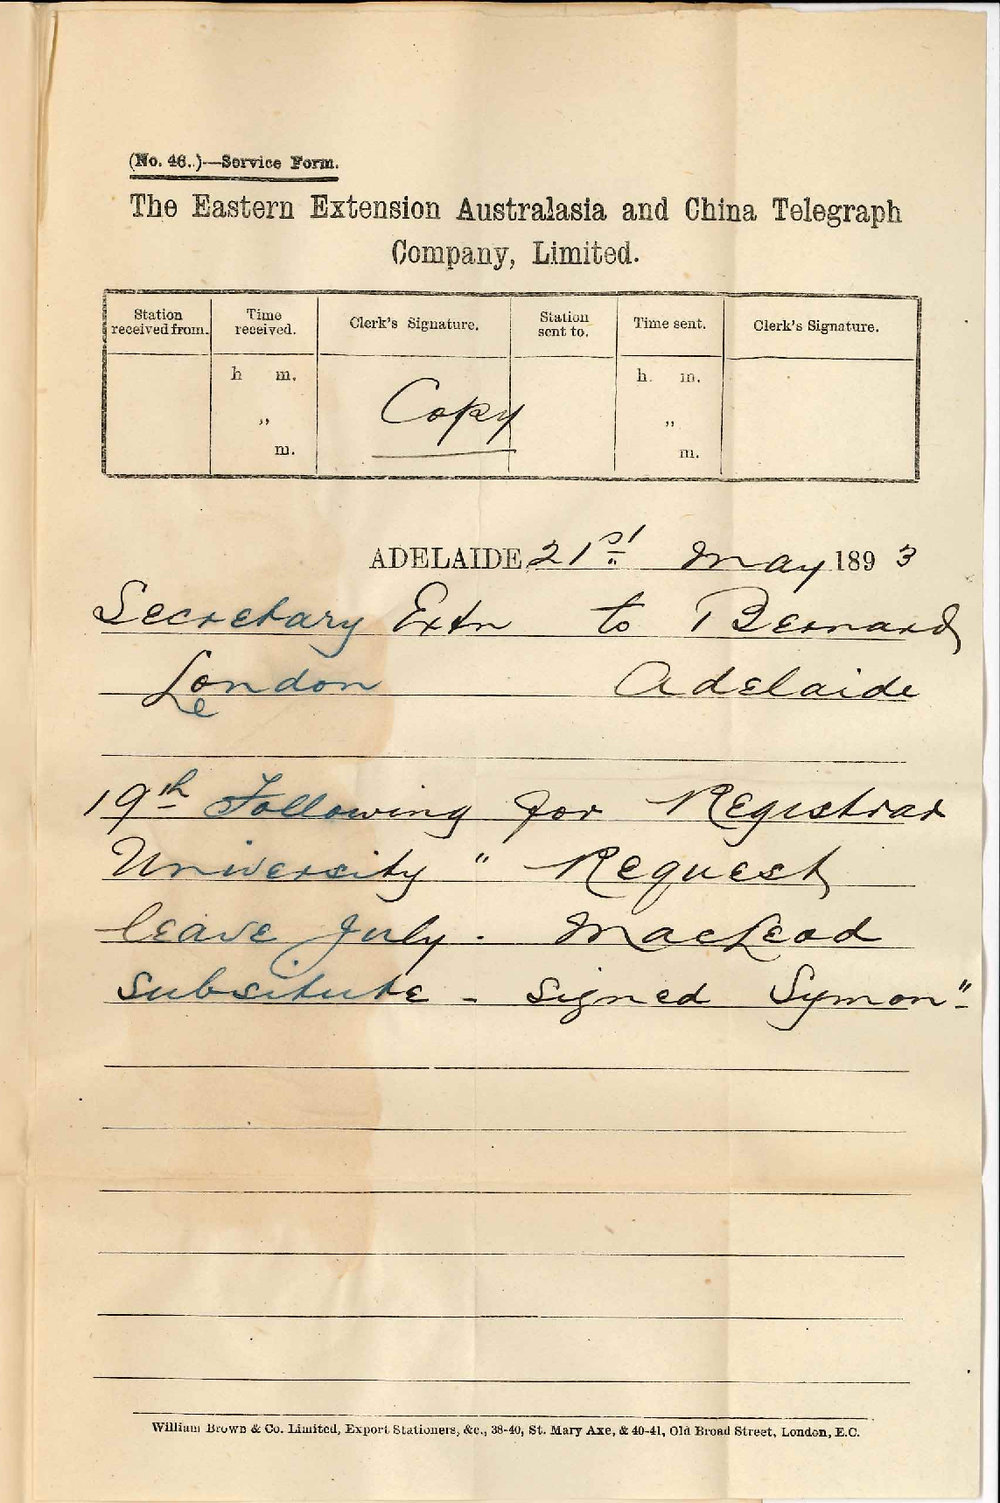 (No. 46.)—Service Form.
The Eastern Extension Australasia and China Telegraph
Company, Limited.
Station received from. Time received. Clerk's Signature. Station sent to. Time sent. Clerk's Signature.
h m. h. m.
Copy
„ „
m. m.
ADELAIDE 21st May 1893
Secretary Extn to Bernard
London Adelaide
19th Following for Registrar
University " Request
leave July. MacLeod
subsitute - signed Symon"
William Brown & Co. Limited, Export Stationers, &c., 38-40, St. Mary Axe, & 40-41, Old Broad Street, London, E.C.